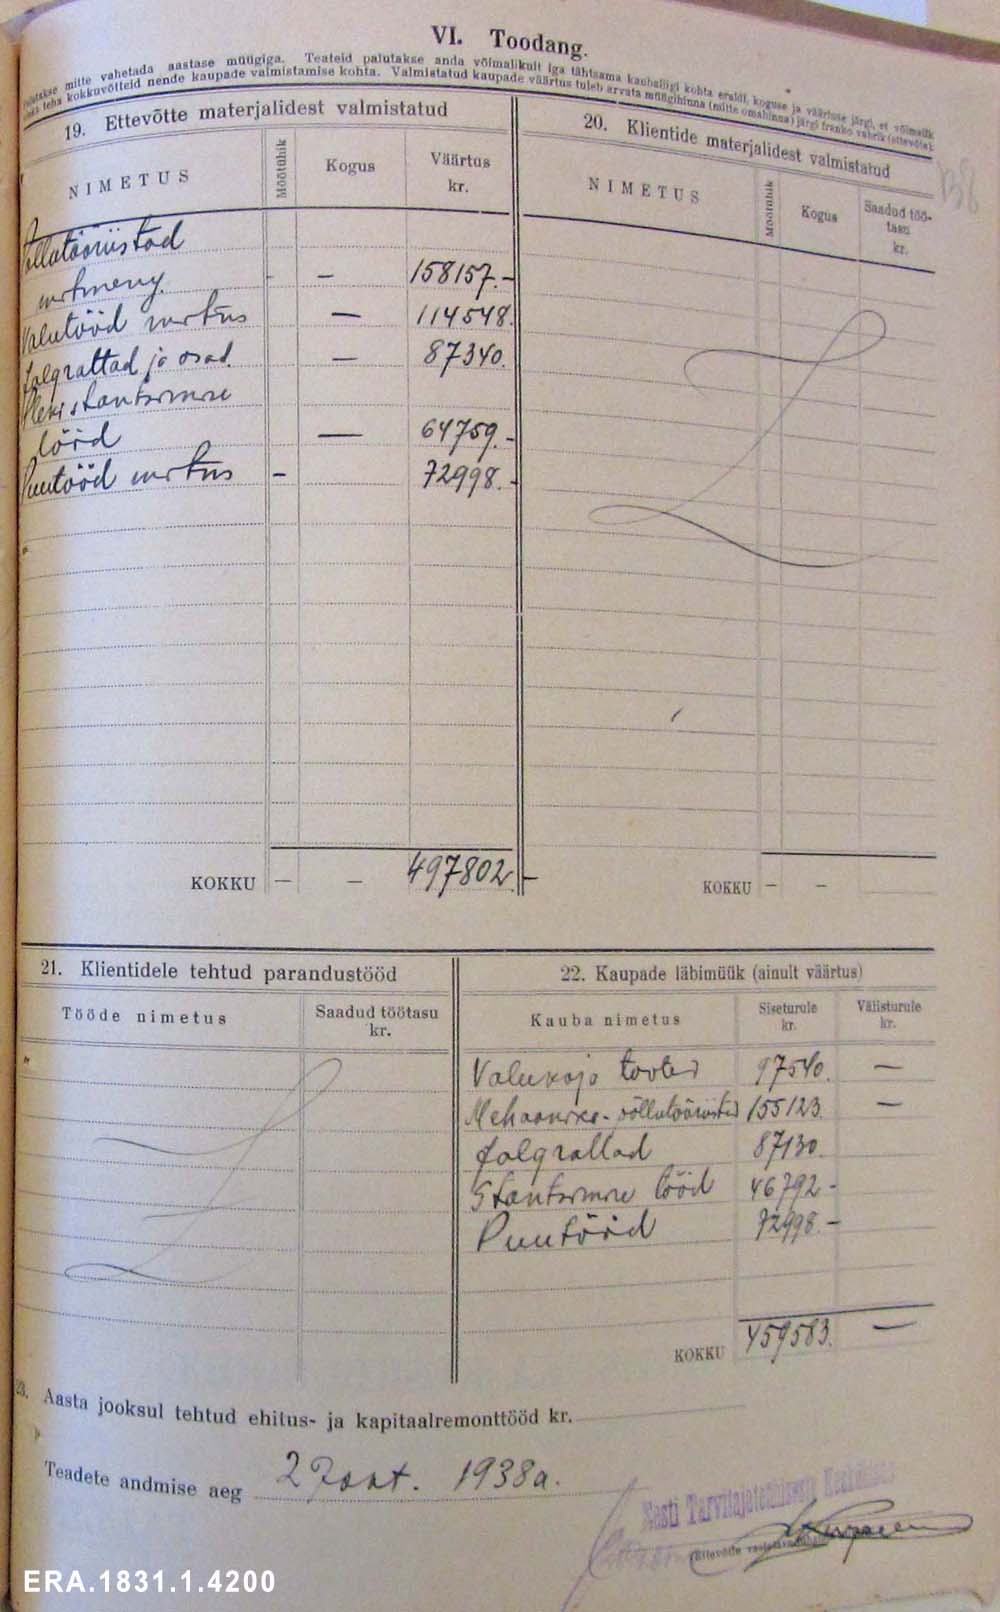 VI. Toodang.
Palutakse mitte vahetada aastase müügiga. Teateid palutakse anda võimalikult iga tähtsama kaubaliigi kohta eraldi, koguse ja väärtuse järgi, et võimalik
oleks teha kokkuvõtteid nende kaupade valmistamise kohta. Valmistatud kaupade väärtus tuleb arvata müügihinna (mitte omahinna) järgi franko vabrik (ettevõte).
19. Ettevõtte materjalidest valmistatud
NIMETUS Mõõtühik Kogus Väärtus kr.
Põllutööriistad
- — 158157.-
Valutööd — 114548.
Jalgrattad ja osad. — 87340.
tööd — 64759.-
Puutööd - 72998.-
KOKKU — — 497802.-
20. Klientide materjalidest valmistatud
NIMETUS Mõõtühik Kogus Saadud töötasu kr.
KOKKU — —
21. Klientidele tehtud parandustööd
Tööde nimetus Saadud töötasu kr.
22. Kaupade läbimüük (ainult väärtus)
Kauba nimetus Siseturule kr. Välisturule kr.
Valukoja tooted 97540. —
Mehaanika- põllutööriistad 155123. —
Jalgrattad 87130.
tööd 46792-
Puutööd 72998.-
KOKKU 459583. —
23. Aasta jooksul tehtud ehitus- ja kapitaalremonttööd kr.
Teadete andmise aeg 2 1938a.
Eesti Tarvitajateühisuste Keskühisus
(Ettevõtte
ERA.1831.1.4200